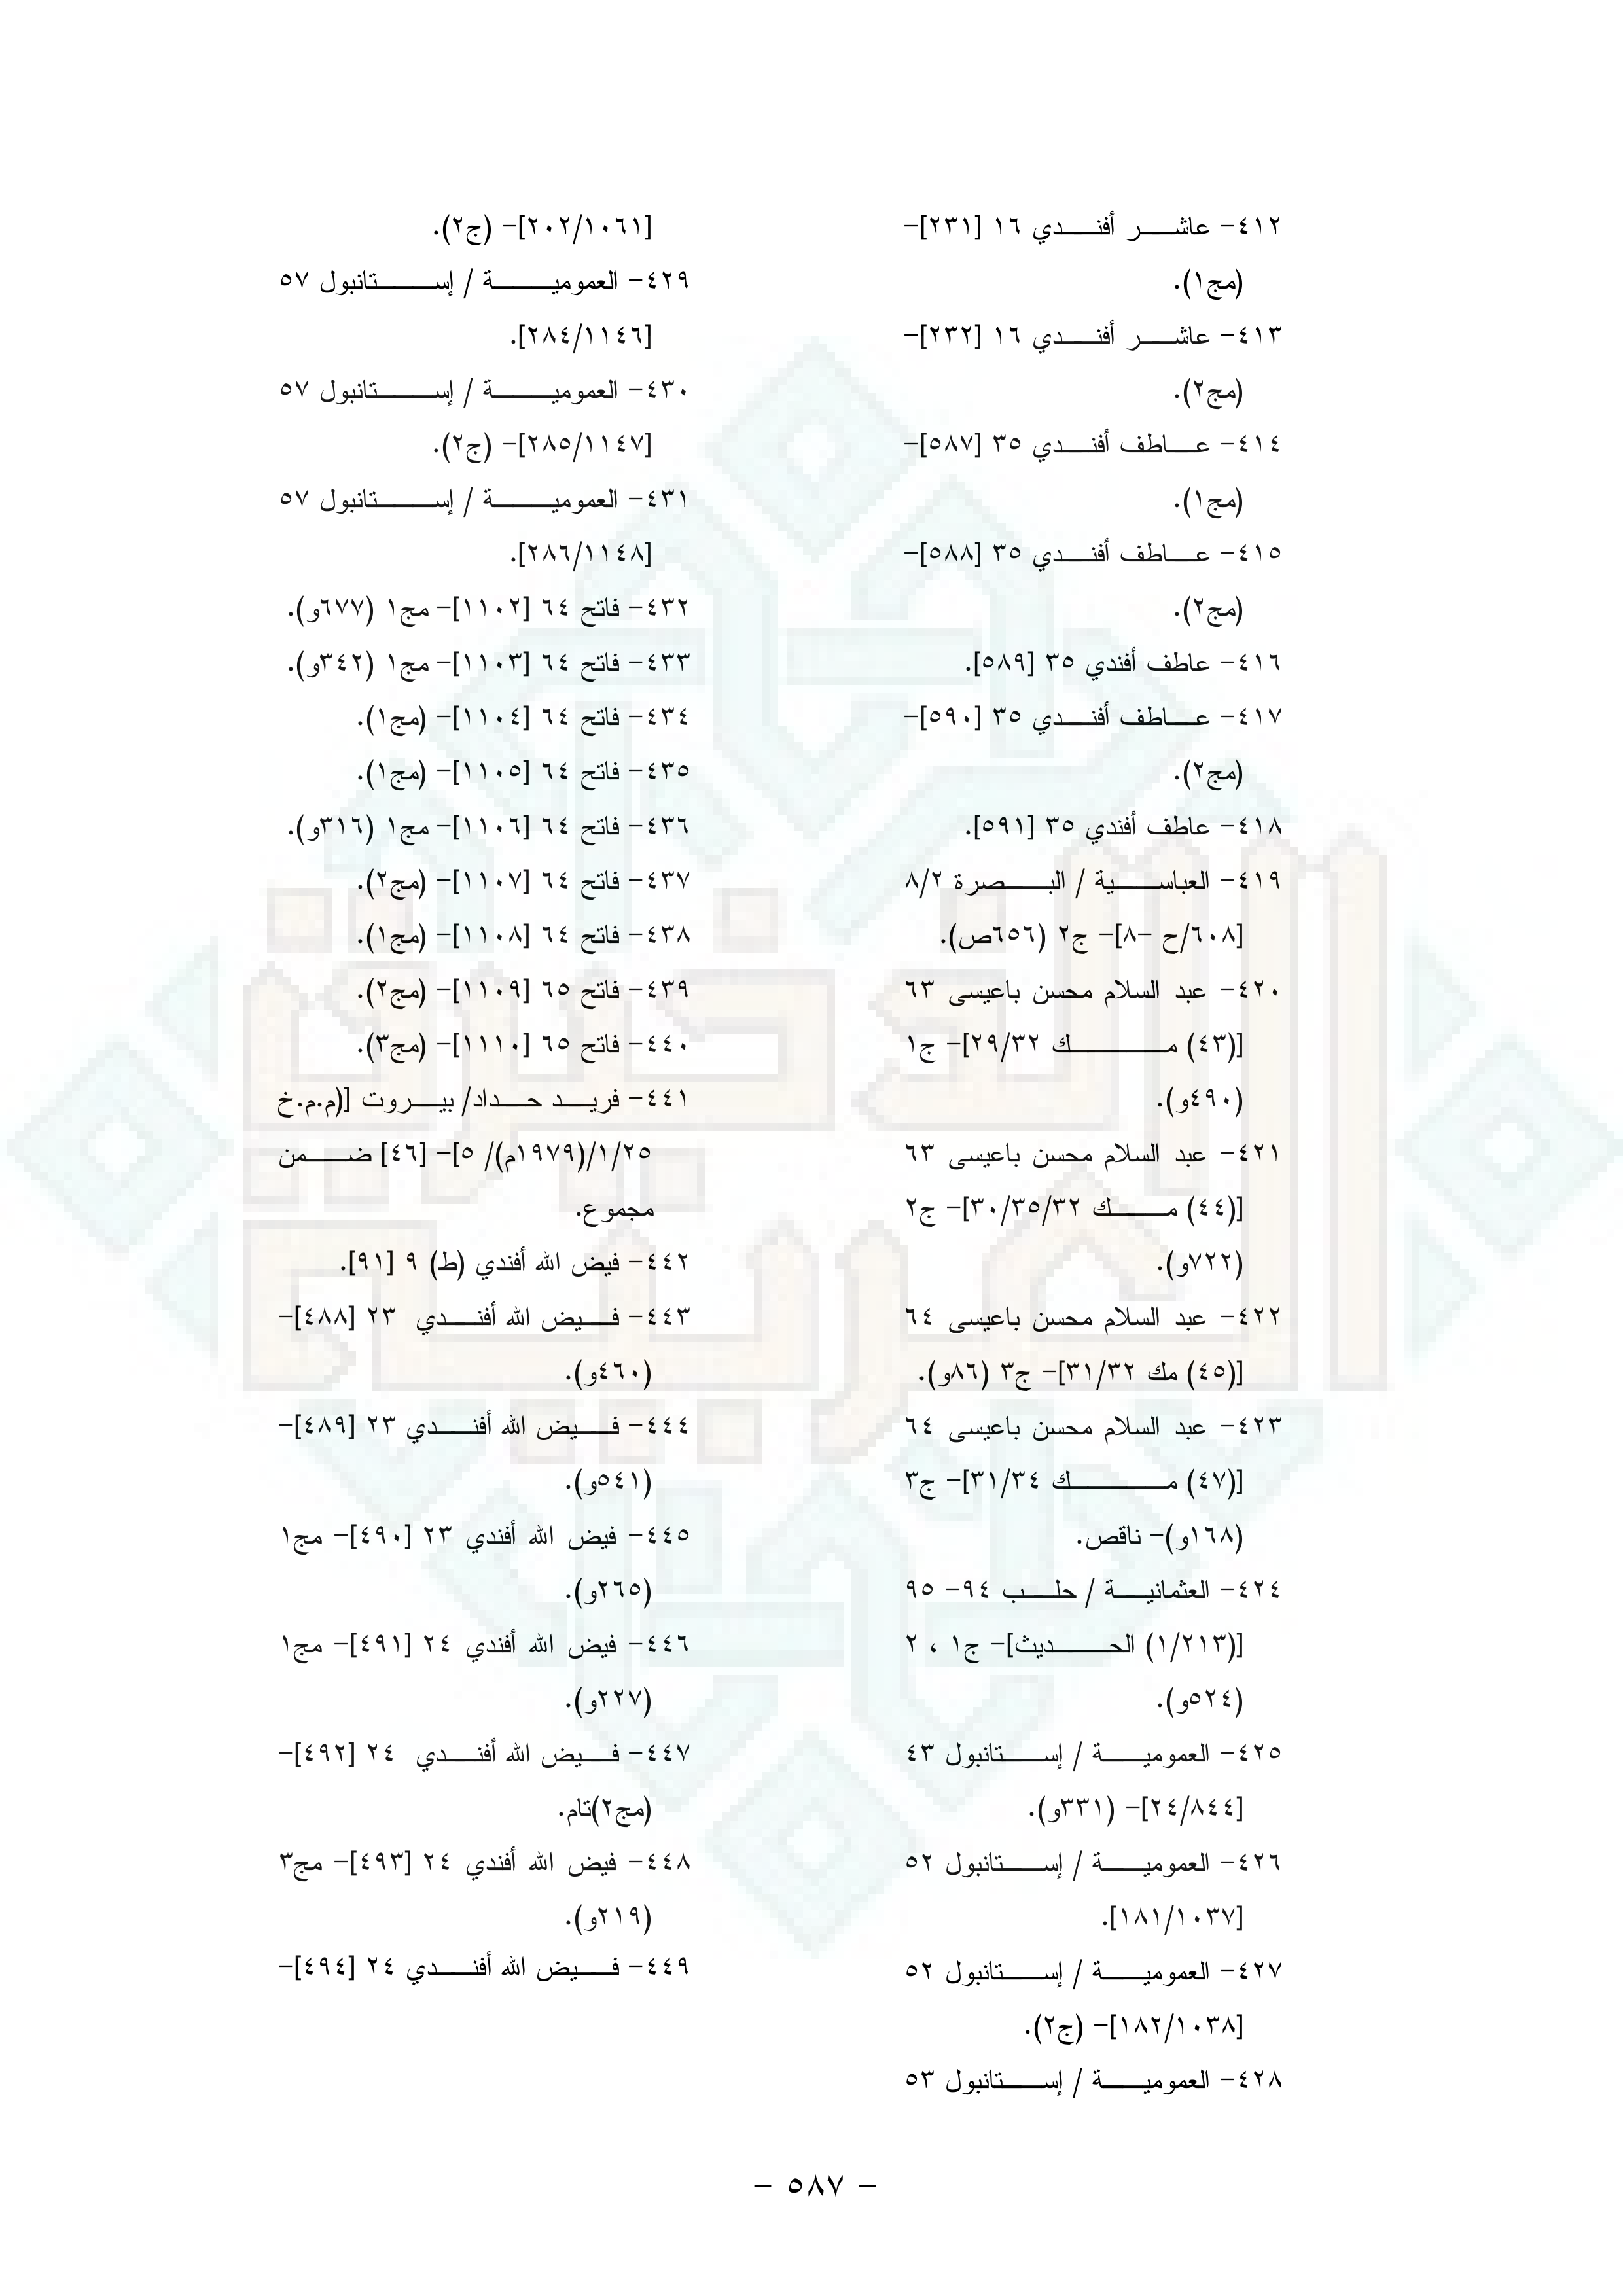 ٤١٢- عاشر أفندي ١٦ [٢٣١]-
(مج١).
٤١٣- عاشر أفندي ١٦ [٢٣٢]-
(مج٢).
٤١٤- عاطف أفندي ٣٥ [٥٨٧]-
(مج١).
٤١٥- عاطف أفندي ٣٥ [٥٨٨]-
(مج٢).
٤١٦- عاطف أفندي ٣٥ [٥٨٩].
٤١٧- عاطف أفندي ٣٥ [٥٩٠]-
(مج٢).
٤١٨- عاطف أفندي ٣٥ [٥٩١].
٤١٩- العباسية / البصرة ٨/٢
[٦٠٨/ح -٨]- ج٢ (٦٥٦ص).
٤٢٠- عبد السلام محسن باعيسى ٦٣
[(٤٣) مك ٢٩/٣٢]- ج١
(٤٩٠و).
٤٢١- عبد السلام محسن باعيسى ٦٣
[(٤٤) مك ٣٠/٣٥/٣٢]- ج٢
(٧٢٢و).
٤٢٢- عبد السلام محسن باعيسى ٦٤
[(٤٥) مك ٣١/٣٢]- ج٣ (٨٦و).
٤٢٣- عبد السلام محسن باعيسى ٦٤
[(٤٧) مك ٣١/٣٤]- ج٣
(١٦٨و)- ناقص.
٤٢٤- العثمانية / حلب ٩٤- ٩٥
[(١/٢١٣) الحديث]- ج١ ، ٢
(٥٢٤و).
٤٢٥- العمومية / إستانبول ٤٣
[٢٤/٨٤٤]- (٣٣١و).
٤٢٦- العمومية / إستانبول ٥٢
[١٨١/١٠٣٧].
٤٢٧- العمومية / إستانبول ٥٢
[١٨٢/١٠٣٨]- (ج٢).
٤٢٨- العمومية / إستانبول ٥٣
[٢٠٢/١٠٦١]- (ج٢).
٤٢٩- العمومية / إستانبول ٥٧
[٢٨٤/١١٤٦].
٤٣٠- العمومية / إستانبول ٥٧
[٢٨٥/١١٤٧]- (ج٢).
٤٣١- العمومية / إستانبول ٥٧
[٢٨٦/١١٤٨].
٤٣٢- فاتح ٦٤ [١١٠٢]- مج١ (٦٧٧و).
٤٣٣- فاتح ٦٤ [١١٠٣]- مج١ (٣٤٢و).
٤٣٤- فاتح ٦٤ [١١٠٤]- (مج١).
٤٣٥- فاتح ٦٤ [١١٠٥]- (مج١).
٤٣٦- فاتح ٦٤ [١١٠٦]- مج١ (٣١٦و).
٤٣٧- فاتح ٦٤ [١١٠٧]- (مج٢).
٤٣٨- فاتح ٦٤ [١١٠٨]- (مج١).
٤٣٩- فاتح ٦٥ [١١٠٩]- (مج٢).
٤٤٠- فاتح ٦٥ [١١١٠]- (مج٣).
٤٤١- فريد حداد/ بيروت [(م.م.خ
١/٢٥/(١٩٧٩م)/ ٥]- [٤٦] ضمن
مجموع.
٤٤٢- فيض الله أفندي (ط) ٩ [٩١].
٤٤٣- فيض الله أفندي ٢٣ [٤٨٨]-
(٤٦٠و).
٤٤٤- فيض الله أفندي ٢٣ [٤٨٩]-
(٥٤١و).
٤٤٥- فيض الله أفندي ٢٣ [٤٩٠]- مج١
(٢٦٥و).
٤٤٦- فيض الله أفندي ٢٤ [٤٩١]- مج١
(٢٢٧و).
٤٤٧- فيض الله أفندي ٢٤ [٤٩٢]-
(مج٢)تام.
٤٤٨- فيض الله أفندي ٢٤ [٤٩٣]- مج٣
(٢١٩و).
٤٤٩- فيض الله أفندي ٢٤ [٤٩٤]-
- ٥٨٧ -